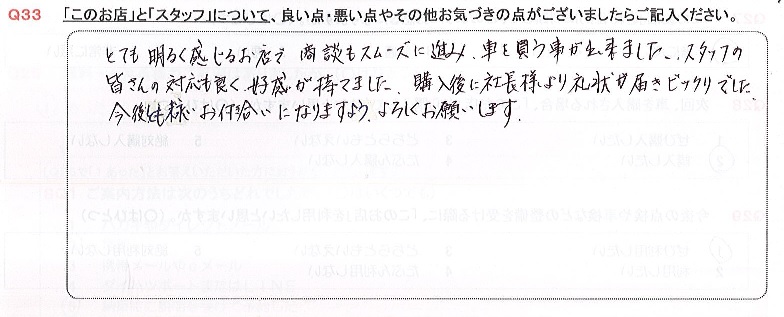 Q33 「このお店」と「スタッフ」について、良い点・悪い点やその他お気づきの点がございましたらご記入ください。
とても明るく感じるお店で 商談もスムーズに進み、車を買う事が出来ました。スタッフの
皆さんの対応も良く、好感が持てました。購入後に社長様より礼状が届きビックリでした。
今後とも永いお付合いになりますよう、よろしくお願いします。